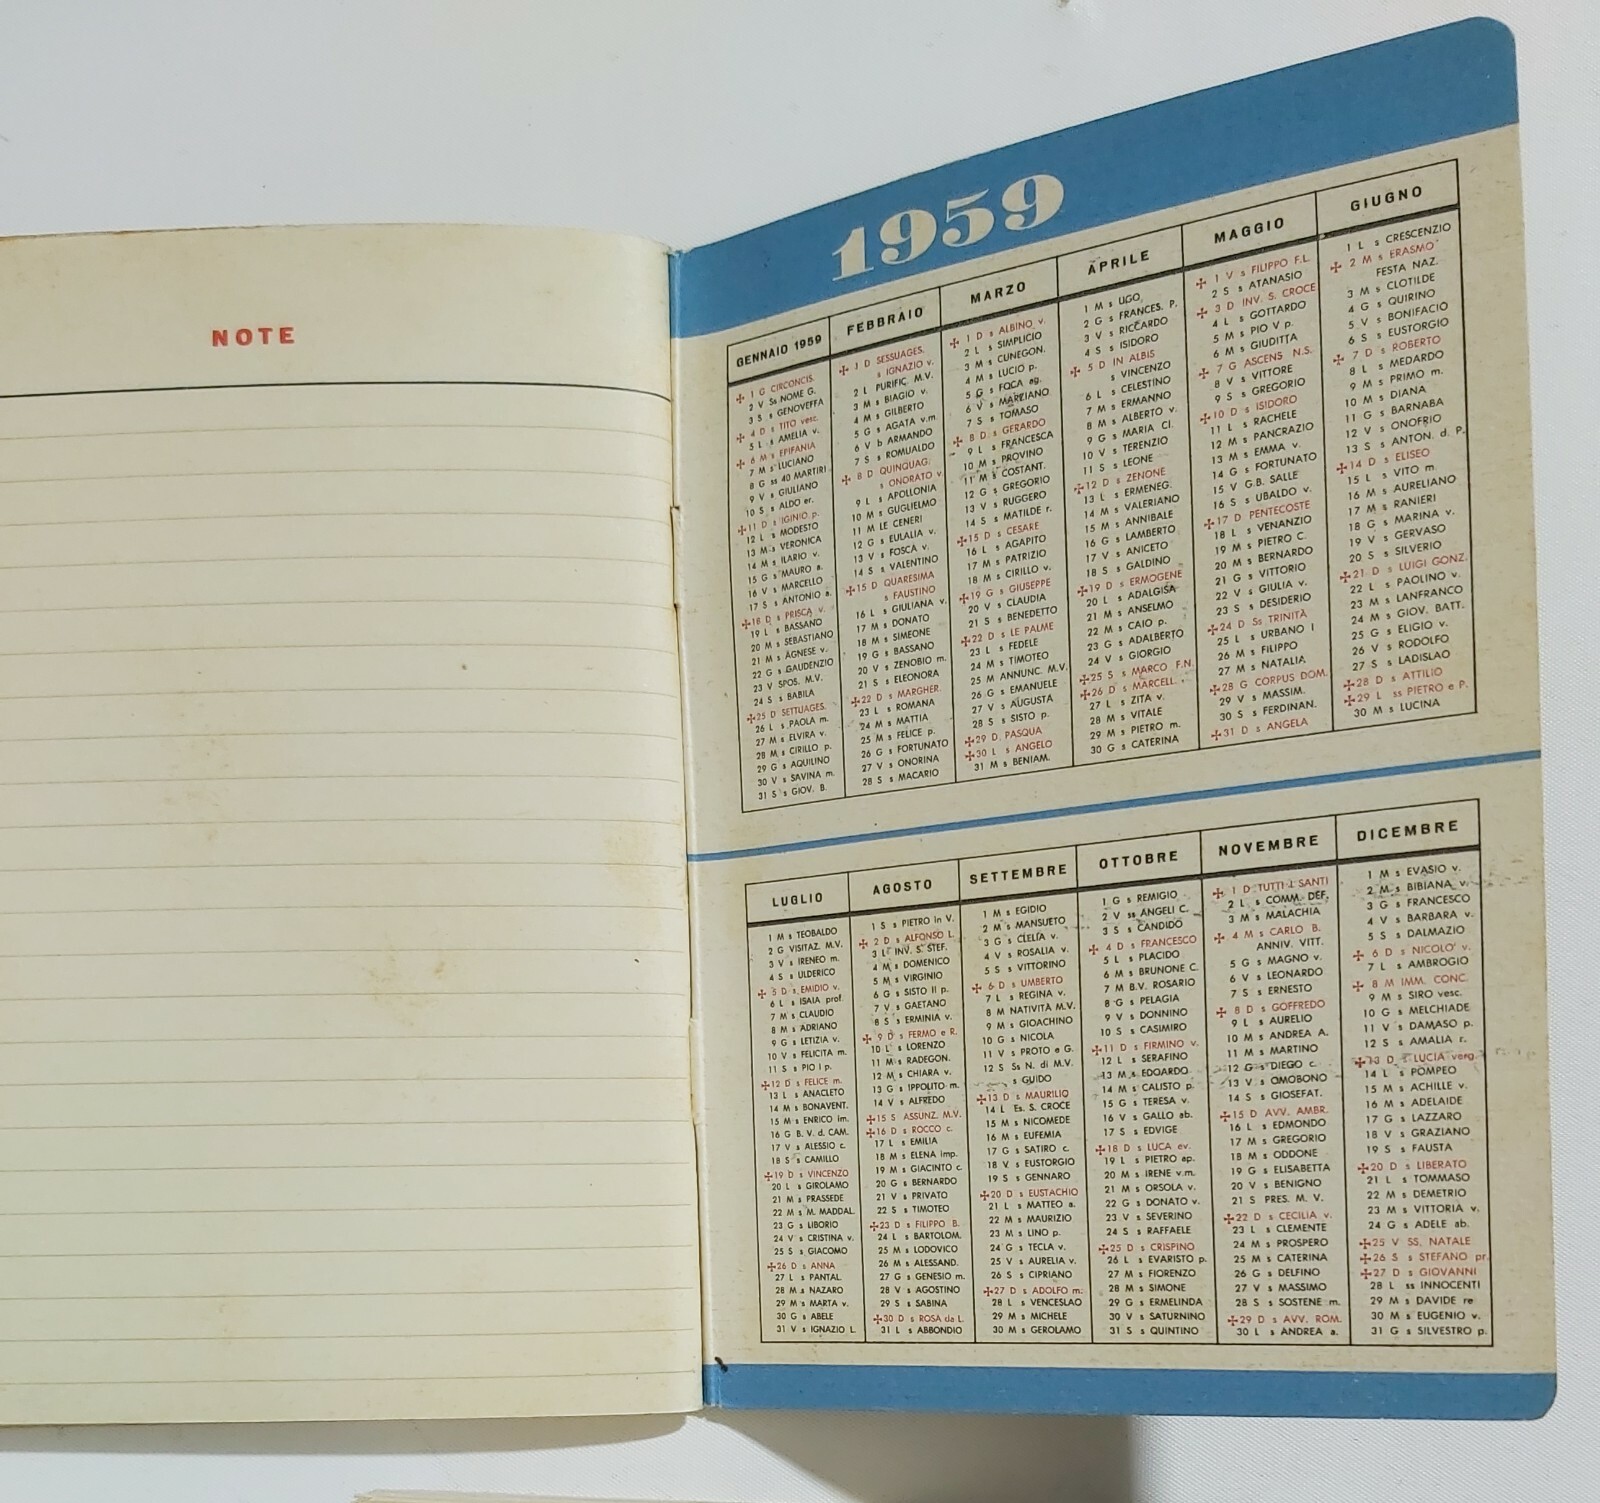 NOTE
1959
GENNAIO 1959
✢ 1 G CIRCONCIS.
2 V Ss NOME G.
3 S s GENOVEFFA
✢ 4 D s TITO vesc.
5 L s AMELIA v.
✢ 6 M s EPIFANIA
7 M s LUCIANO
8 G ss 40 MARTIRI
9 V s GIULIANO
10 S s ALDO er.
✢ 11 D s IGINIO p.
12 L s MODESTO
13 M s VERONICA
14 M s ILARIO v.
15 G s MAURO a.
16 V s MARCELLO
17 S s ANTONIO a.
✢ 18 D s PRISCA v.
19 L s BASSANO
20 M s SEBASTIANO
21 M s AGNESE v.
22 G s GAUDENZIO
23 V SPOS. M.V.
24 S s BABILA
✢ 25 D SETTUAGES.
26 L s PAOLA m.
27 M s ELVIRA v.
28 M s CIRILLO p.
29 G s AQUILINO
30 V s SAVINA m.
31 S s GIOV. B.
FEBBRAIO
✢ 1 D SESSUAGES.
s IGNAZIO v.
2 L PURIFIC. M.V.
3 M s BIAGIO v.
4 M s GILBERTO
5 G s AGATA v.m.
6 V b ARMANDO
7 S s ROMUALDO
✢ 8 D QUINQUAG.
s ONORATO v.
9 L s APOLLONIA
10 M s GUGLIELMO
11 M LE CENERI
12 G s EULALIA v.
13 V s FOSCA v.
14 S s VALENTINO
✢ 15 D QUARESIMA
s FAUSTINO
16 L s GIULIANA v.
17 M s DONATO
18 M s SIMEONE
19 G s BASSANO
20 V s ZENOBIO m.
21 S s ELEONORA
✢ 22 D s MARGHER.
23 L s ROMANA
24 M s MATTIA
25 M s FELICE p.
26 G s FORTUNATO
27 V s ONORINA
28 S s MACARIO
MARZO
✢ 1 D s ALBINO v.
2 L s SIMPLICIO
3 M s CUNEGON.
4 M s LUCIO p.
5 G s FOCA ag.
6 V s MARZIANO
7 S s TOMASO
✢ 8 D s GERARDO
9 L s FRANCESCA
10 M s PROVINO
11 M s COSTANT.
12 G s GREGORIO
13 V s RUGGERO
14 S s MATILDE r.
✢ 15 D s CESARE
16 L s AGAPITO
17 M s PATRIZIO
18 M s CIRILLO v.
✢ 19 G s GIUSEPPE
20 V s CLAUDIA
21 S s BENEDETTO
✢ 22 D s LE PALME
23 L s FEDELE
24 M s TIMOTEO
25 M ANNUNC. M.V.
26 G s EMANUELE
27 V s AUGUSTA
28 S s SISTO p.
✢ 29 D. PASQUA
✢ 30 L s ANGELO
31 M s BENIAM.
APRILE
1 M s UGO
2 G s FRANCES. P.
3 V s RICCARDO
4 S s ISIDORO
✢ 5 D IN ALBIS
s VINCENZO
6 L s CELESTINO
7 M s ERMANNO
8 M s ALBERTO v.
9 G s MARIA Cl.
10 V s TERENZIO
11 S s LEONE
✢ 12 D s ZENONE
13 L s ERMENEG.
14 M s VALERIANO
15 M s ANNIBALE
16 G s LAMBERTO
17 V s ANICETO
18 S s GALDINO
✢ 19 D s ERMOGENE
20 L s ADALGISA
21 M s ANSELMO
22 M s CAIO p.
23 G s ADALBERTO
24 V s GIORGIO
✢ 25 S s MARCO F.N.
✢ 26 D s MARCELL.
27 L s ZITA v.
28 M s VITALE
29 M s PIETRO m.
30 G s CATERINA
MAGGIO
✢ 1 V s FILIPPO F.L.
2 S s ATANASIO
✢ 3 D INV. S. CROCE
4 L s GOTTARDO
5 M s PIO V p.
6 M s GIUDITTA
✢ 7 G ASCENS N.S.
8 V s VITTORE
9 S s GREGORIO
✢ 10 D s ISIDORO
11 L s RACHELE
12 M s PANCRAZIO
13 M s EMMA v.
14 G s FORTUNATO
15 V G.B. SALLE
16 S s UBALDO v.
✢ 17 D PENTECOSTE
18 L s VENANZIO
19 M s PIETRO C.
20 M s BERNARDO
21 G s VITTORIO
22 V s GIULIA v.
23 S s DESIDERIO
✢ 24 D Ss TRINITÀ
25 L s URBANO I
26 M s FILIPPO
27 M s NATALIA
✢ 28 G CORPUS DOM.
29 V s MASSIM.
30 S s FERDINAN.
✢ 31 D s ANGELA
GIUGNO
1 L s CRESCENZIO
✢ 2 M s ERASMO
FESTA NAZ.
3 M s CLOTILDE
4 G s QUIRINO
5 V s BONIFACIO
6 S s EUSTORGIO
✢ 7 D s ROBERTO
8 L s MEDARDO
9 M s PRIMO m.
10 M s DIANA
11 G s BARNABA
12 V s ONOFRIO
13 S s ANTON. d. P.
✢ 14 D s ELISEO
15 L s VITO m.
16 M s AURELIANO
17 M s RANIERI
18 G s MARINA v.
19 V s GERVASO
20 S s SILVERIO
✢ 21 D s LUIGI GONZ.
22 L s PAOLINO v.
23 M s LANFRANCO
24 M s GIOV. BATT.
25 G s ELIGIO v.
26 V s RODOLFO
27 S s LADISLAO
✢ 28 D s ATTILIO
✢ 29 L ss PIETRO e P.
30 M s LUCINA
LUGLIO
1 M s TEOBALDO
2 G VISITAZ. M.V.
3 V s IRENEO m.
4 S s ULDERICO
✢ 5 D s EMIDIO v.
6 L s ISAIA prof.
7 M s CLAUDIO
8 M s ADRIANO
9 G s LETIZIA v.
10 V s FELICITA m.
11 S s PIO I p.
✢ 12 D s FELICE m.
13 L s ANACLETO
14 M s BONAVENT.
15 M s ENRICO im.
16 G B. V. d. CAM.
17 V s ALESSIO c.
18 S s CAMILLO
✢ 19 D s VINCENZO
20 L s GIROLAMO
21 M s PRASSEDE
22 M s M. MADDAL.
23 G s LIBORIO
24 V s CRISTINA v.
25 S s GIACOMO
✢ 26 D s ANNA
27 L s PANTAL.
28 M s NAZARO
29 M s MARTA v.
30 G s ABELE
31 V s IGNAZIO L.
AGOSTO
1 S s PIETRO in V.
✢ 2 D s ALFONSO L.
3 L INV. S. STEF.
4 M s DOMENICO
5 M s VIRGINIO
6 G s SISTO II p.
7 V s GAETANO
8 S s ERMINIA v.
✢ 9 D s FERMO e R.
10 L s LORENZO
11 M s RADEGON.
12 M s CHIARA v.
13 G s IPPOLITO m.
14 V s ALFREDO
✢ 15 S ASSUNZ. M.V.
✢ 16 D s ROCCO c.
17 L s EMILIA
18 M s ELENA imp.
19 M s GIACINTO c.
20 G s BERNARDO
21 V s PRIVATO
22 S s TIMOTEO
✢ 23 D s FILIPPO B.
24 L s BARTOLOM.
25 M s LODOVICO
26 M s ALESSAND.
27 G s GENESIO m.
28 V s AGOSTINO
29 S s SABINA
✢ 30 D s ROSA da L.
31 L s ABBONDIO
SETTEMBRE
1 M s EGIDIO
2 M s MANSUETO
3 G s CLELIA v.
4 V s ROSALIA v.
5 S s VITTORINO
✢ 6 D s UMBERTO
7 L s REGINA v.
8 M NATIVITÀ M.V.
9 M s GIOACHINO
10 G s NICOLA
11 V s PROTO e G.
12 S Ss N. di M.V.
s GUIDO
✢ 13 D s MAURILIO
14 L Es. S. CROCE
15 M s NICOMEDE
16 M s EUFEMIA
17 G s SATIRO c.
18 V s EUSTORGIO
19 S s GENNARO
✢ 20 D s EUSTACHIO
21 L s MATTEO a.
22 M s MAURIZIO
23 M s LINO p.
24 G s TECLA v.
25 V s AURELIA v.
26 S s CIPRIANO
✢ 27 D s ADOLFO m.
28 L s VENCESLAO
29 M s MICHELE
30 M s GEROLAMO
OTTOBRE
1 G s REMIGIO
2 V ss ANGELI C.
3 S s CANDIDO
✢ 4 D s FRANCESCO
5 L s PLACIDO
6 M s BRUNONE C.
7 M B.V. ROSARIO
8 G s PELAGIA
9 V s DONNINO
10 S s CASIMIRO
✢ 11 D s FIRMINO v.
12 L s SERAFINO
13 M s EDOARDO
14 M s CALISTO p.
15 G s TERESA v.
16 V s GALLO ab.
17 S s EDVIGE
✢ 18 D s LUCA ev.
19 L s PIETRO ap.
20 M s IRENE v.m.
21 M s ORSOLA v.
22 G s DONATO v.
23 V s SEVERINO
24 S s RAFFAELE
✢ 25 D s CRISPINO
26 L s EVARISTO p.
27 M s FIORENZO
28 M s SIMONE
29 G s ERMELINDA
30 V s SATURNINO
31 S s QUINTINO
NOVEMBRE
✢ 1 D TUTTI I SANTI
2 L s COMM. DEF.
3 M s MALACHIA
✢ 4 M s CARLO B.
ANNIV. VITT.
5 G s MAGNO v.
6 V s LEONARDO
7 S s ERNESTO
✢ 8 D s GOFFREDO
9 L s AURELIO
10 M s ANDREA A.
11 M s MARTINO
12 G s DIEGO c.
13 V s OMOBONO
14 S s GIOSEFAT.
✢ 15 D AVV. AMBR.
16 L s EDMONDO
17 M s GREGORIO
18 M s ODDONE
19 G s ELISABETTA
20 V s BENIGNO
21 S PRES. M. V.
✢ 22 D s CECILIA v.
23 L s CLEMENTE
24 M s PROSPERO
25 M s CATERINA
26 G s DELFINO
27 V s MASSIMO
28 S s SOSTENE m.
✢ 29 D s AVV. ROM.
30 L s ANDREA a.
DICEMBRE
1 M s EVASIO v.
2 M s BIBIANA v.
3 G s FRANCESCO
4 V s BARBARA v.
5 S s DALMAZIO
✢ 6 D s NICOLO' v.
7 L s AMBROGIO
✢ 8 M IMM. CONC.
9 M s SIRO vesc.
10 G s MELCHIADE
11 V s DAMASO p.
12 S s AMALIA r.
✢ 13 D s LUCIA verg.
14 L s POMPEO
15 M s ACHILLE v.
16 M s ADELAIDE
17 G s LAZZARO
18 V s GRAZIANO
19 S s FAUSTA
✢ 20 D s LIBERATO
21 L s TOMMASO
22 M s DEMETRIO
23 M s VITTORIA v.
24 G s ADELE ab.
✢ 25 V SS. NATALE
✢ 26 S s STEFANO pr.
✢ 27 D s GIOVANNI
28 L ss INNOCENTI
29 M s DAVIDE re
30 M s EUGENIO v.
31 G s SILVESTRO p.